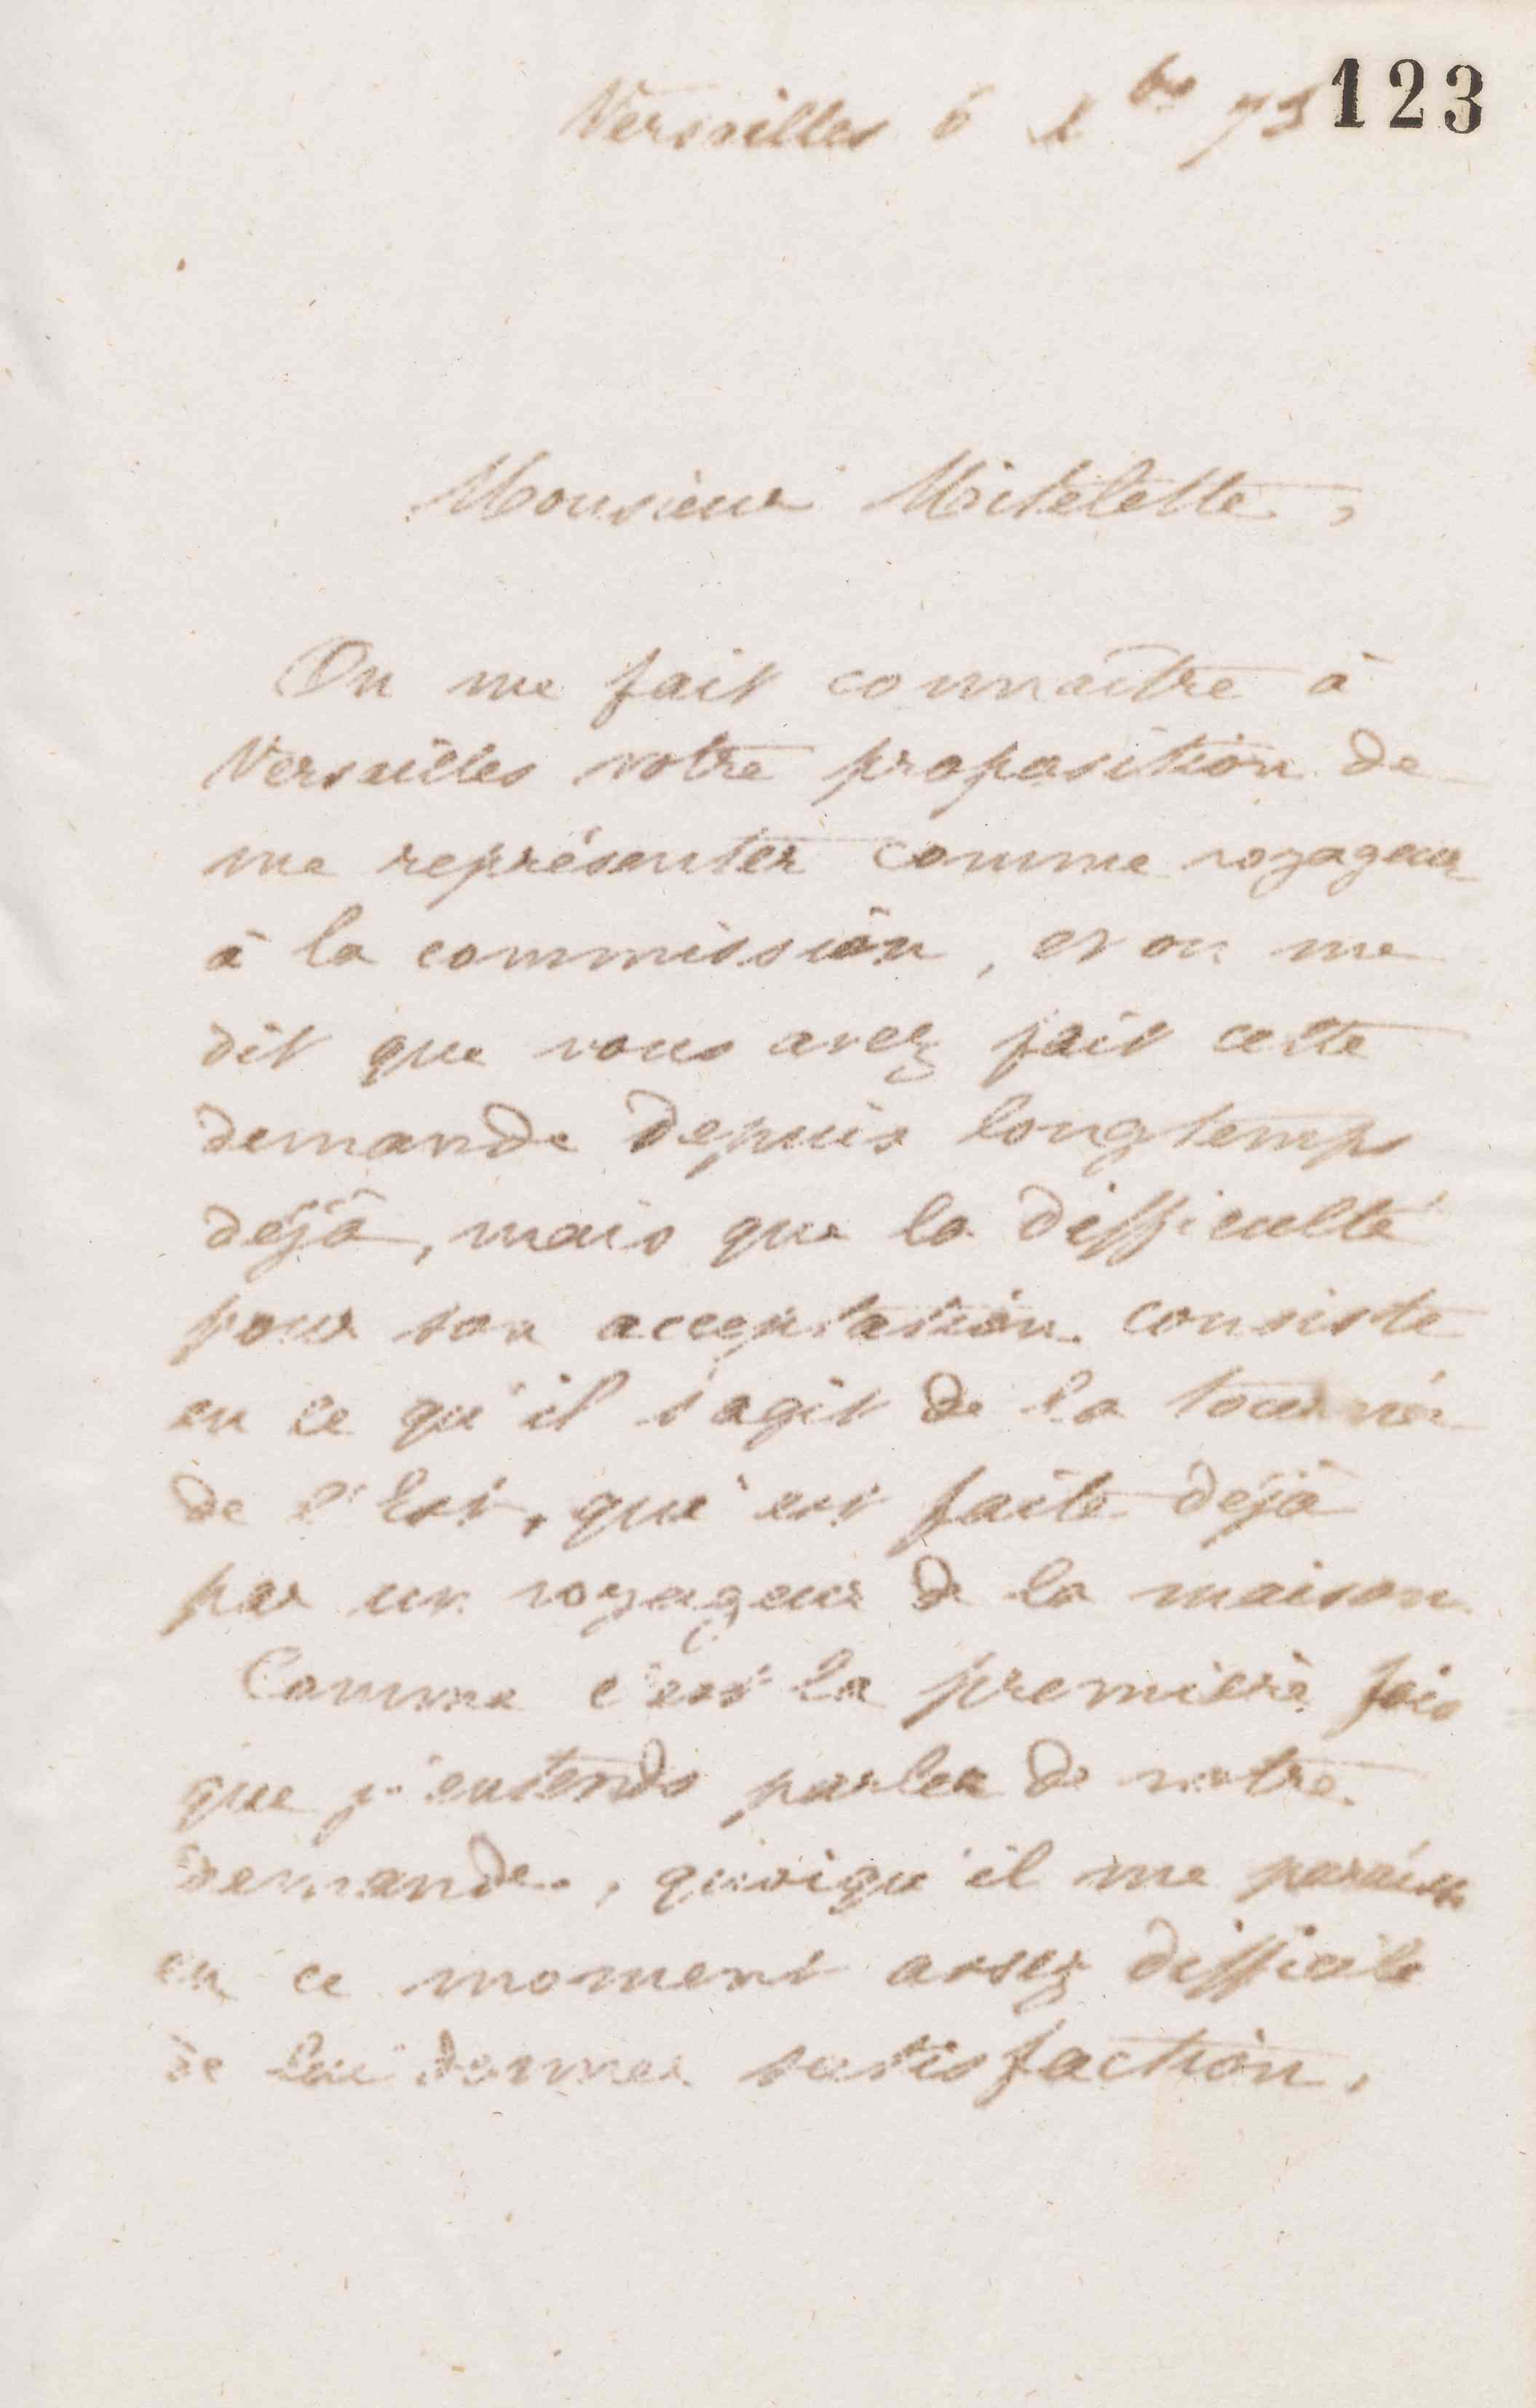 Versailles 6 Xbre 73
123
Monsieur Mitelette,
On me fait connaître à
Versailles votre proposition de
me représenter comme voyageur
à la commission, et on me
dit que vous avez fait cette
demande depuis longtemps
déjà, mais que la difficulté
pour son acceptation consiste
en ce qu'il s'agit de la tournée
de l'Est, qui est faite déjà
par un voyageur de la maison
Comme c'est la première fois
que j'entends parler de votre
demande, quoiqu'il me paraisse
en ce moment assez difficile
de lui donner satisfaction,